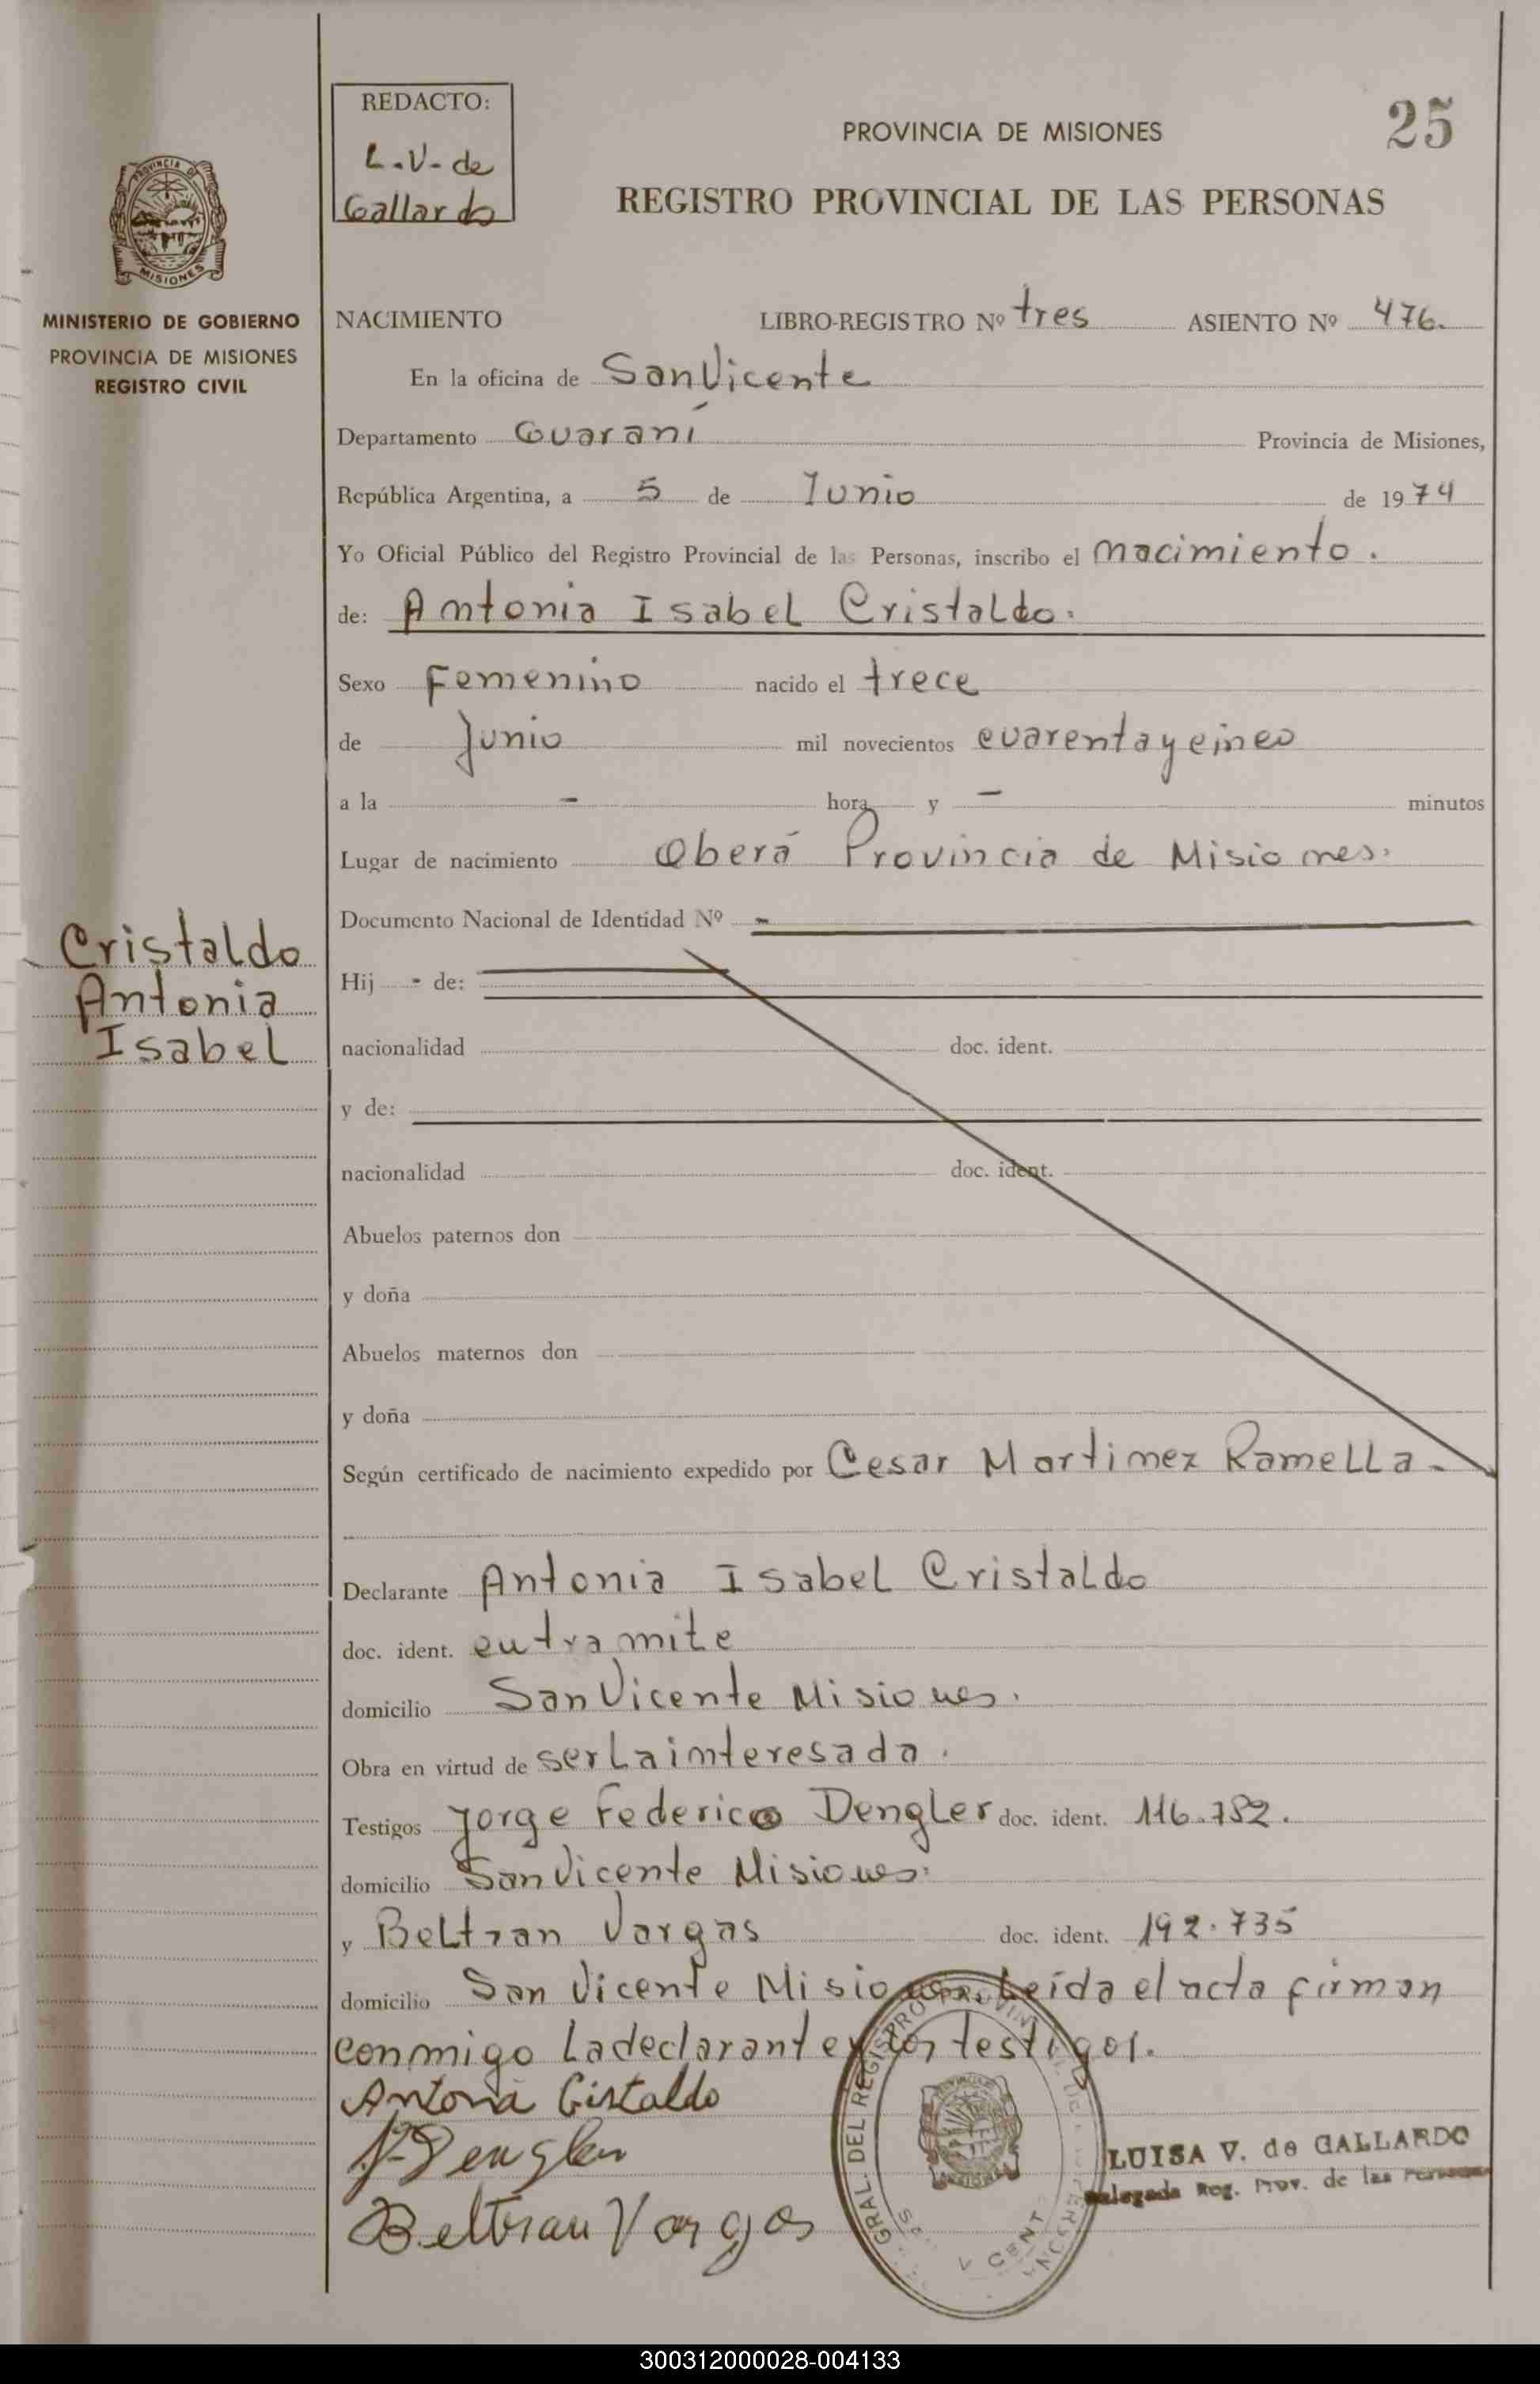 REDACTO:
L.V. de
Gallardo
PROVINCIA DE MISIONES
25
REGISTRO PROVINCIAL DE LAS PERSONAS
PROVINCIA DE
MISIONES
MINISTERIO DE GOBIERNO
PROVINCIA DE MISIONES
REGISTRO CIVIL
NACIMIENTO LIBRO-REGISTRO Nº tres ASIENTO Nº 476.
En la oficina de San Vicente
Departamento Guaraní Provincia de Misiones,
República Argentina, a 5 de Junio de 1974
Yo Oficial Público del Registro Provincial de las Personas, inscribo el nacimiento.
de: Antonia Isabel Cristaldo.
Sexo Femenino nacido el trece
de Junio mil novecientos cuarenta y cinco
a la - hora y - minutos
Lugar de nacimiento Oberá Provincia de Misiones.
Documento Nacional de Identidad Nº -
Cristaldo
Antonia
Isabel
Hij - de:
nacionalidad doc. ident.
y de:
nacionalidad doc. ident.
Abuelos paternos don
y doña
Abuelos maternos don
y doña
Según certificado de nacimiento expedido por Cesar Martinez Ramella-
Declarante Antonia Isabel Cristaldo
doc. ident. en tramite
domicilio San Vicente Misiones.
Obra en virtud de ser la interesada.
Testigos Jorge Federico Dengler doc. ident. 116.782.
domicilio San Vicente Misiones.
y Beltran Vargas doc. ident. 192.735
domicilio San Vicente Misiones. Leída el acta firman
conmigo La declarante y los testigos.
Antonia Cristaldo
Dengler
Beltran Vargas
GRAL. DEL REGIS PRO PROVIN
LUISA V. de GALLARDO
Delegada Reg. Prov. de las Personas
300312000028-004133